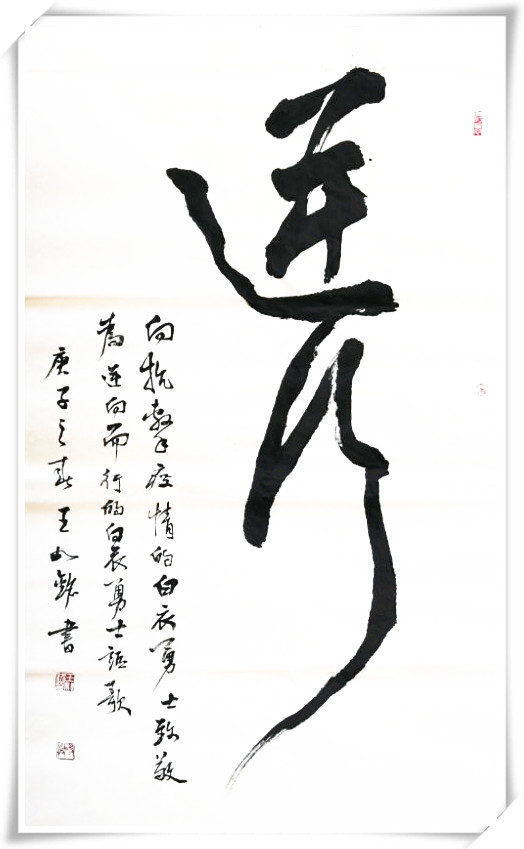 逆行
向抗擊疫情的白衣勇士致敬
為逆向而行的白衣勇士謳歌
庚子之春王書